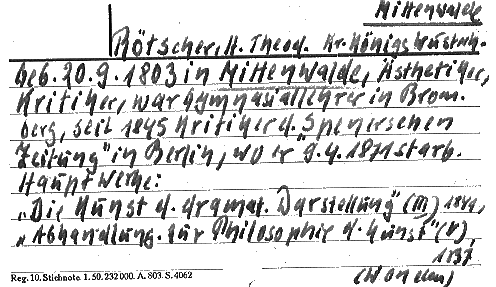 Mittenwalde
Rötscher, H. Theod. Kr. Königswusterh.
geb. 20.9.1803 in Mittenwalde, Ästhetiker,
Kritiker, war Gymnasiallehrer in Brom-
berg, seit 1845 Kritiker d. "Spenerschen
Zeitung" in Berlin, wo er 9.4.1871 starb.
Hauptwerke:
„Die Kunst d. dramat. Darstellung" (III) 1844,
„Abhandlung. zur Philosophie d. Kunst" (V),
1137
Reg. 10. Stichnote. 1. 50. 232 000. A. 803. S. 4062